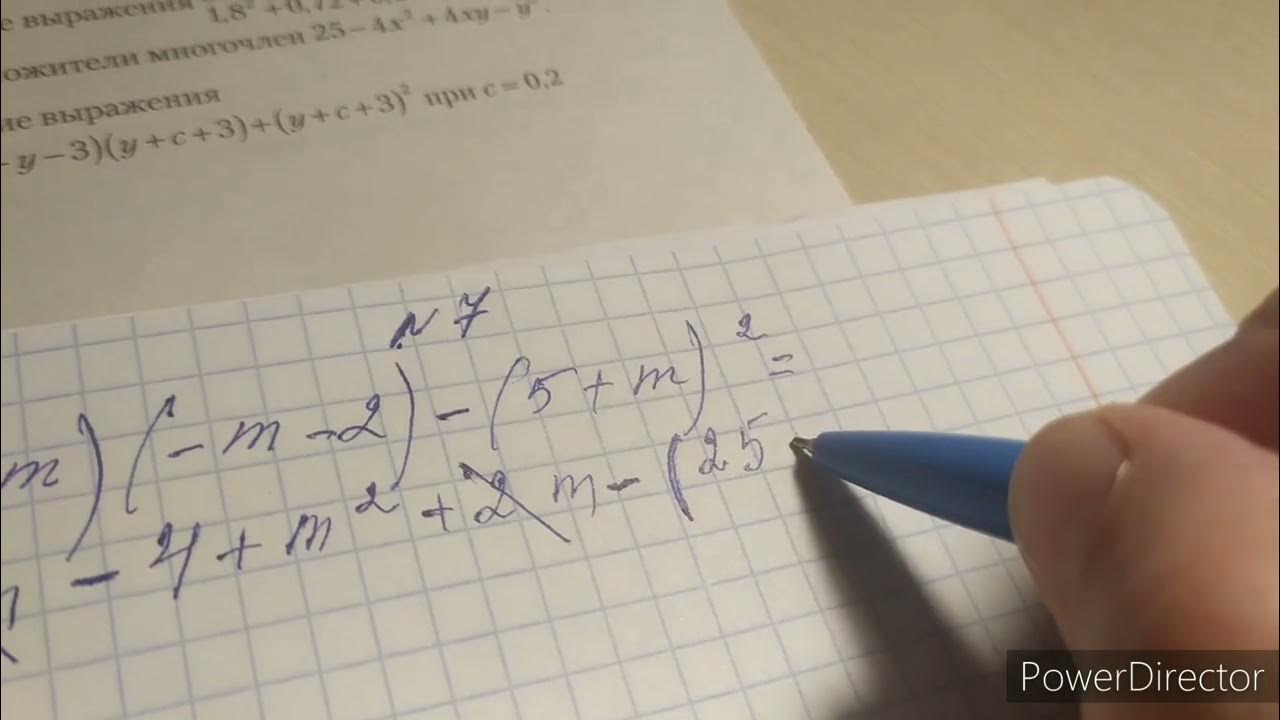 е выражения 1,8² + 0,72 +
ожители многочлен 25 – 4x² + 4xy – y².
ие выражения
– y – 3)(y + c + 3) + (y + c + 3)² при c = 0,2
N 7
m)(- m - 2) - (5 + m)² =
- 4 + m² + 2m - (25
PowerDirector